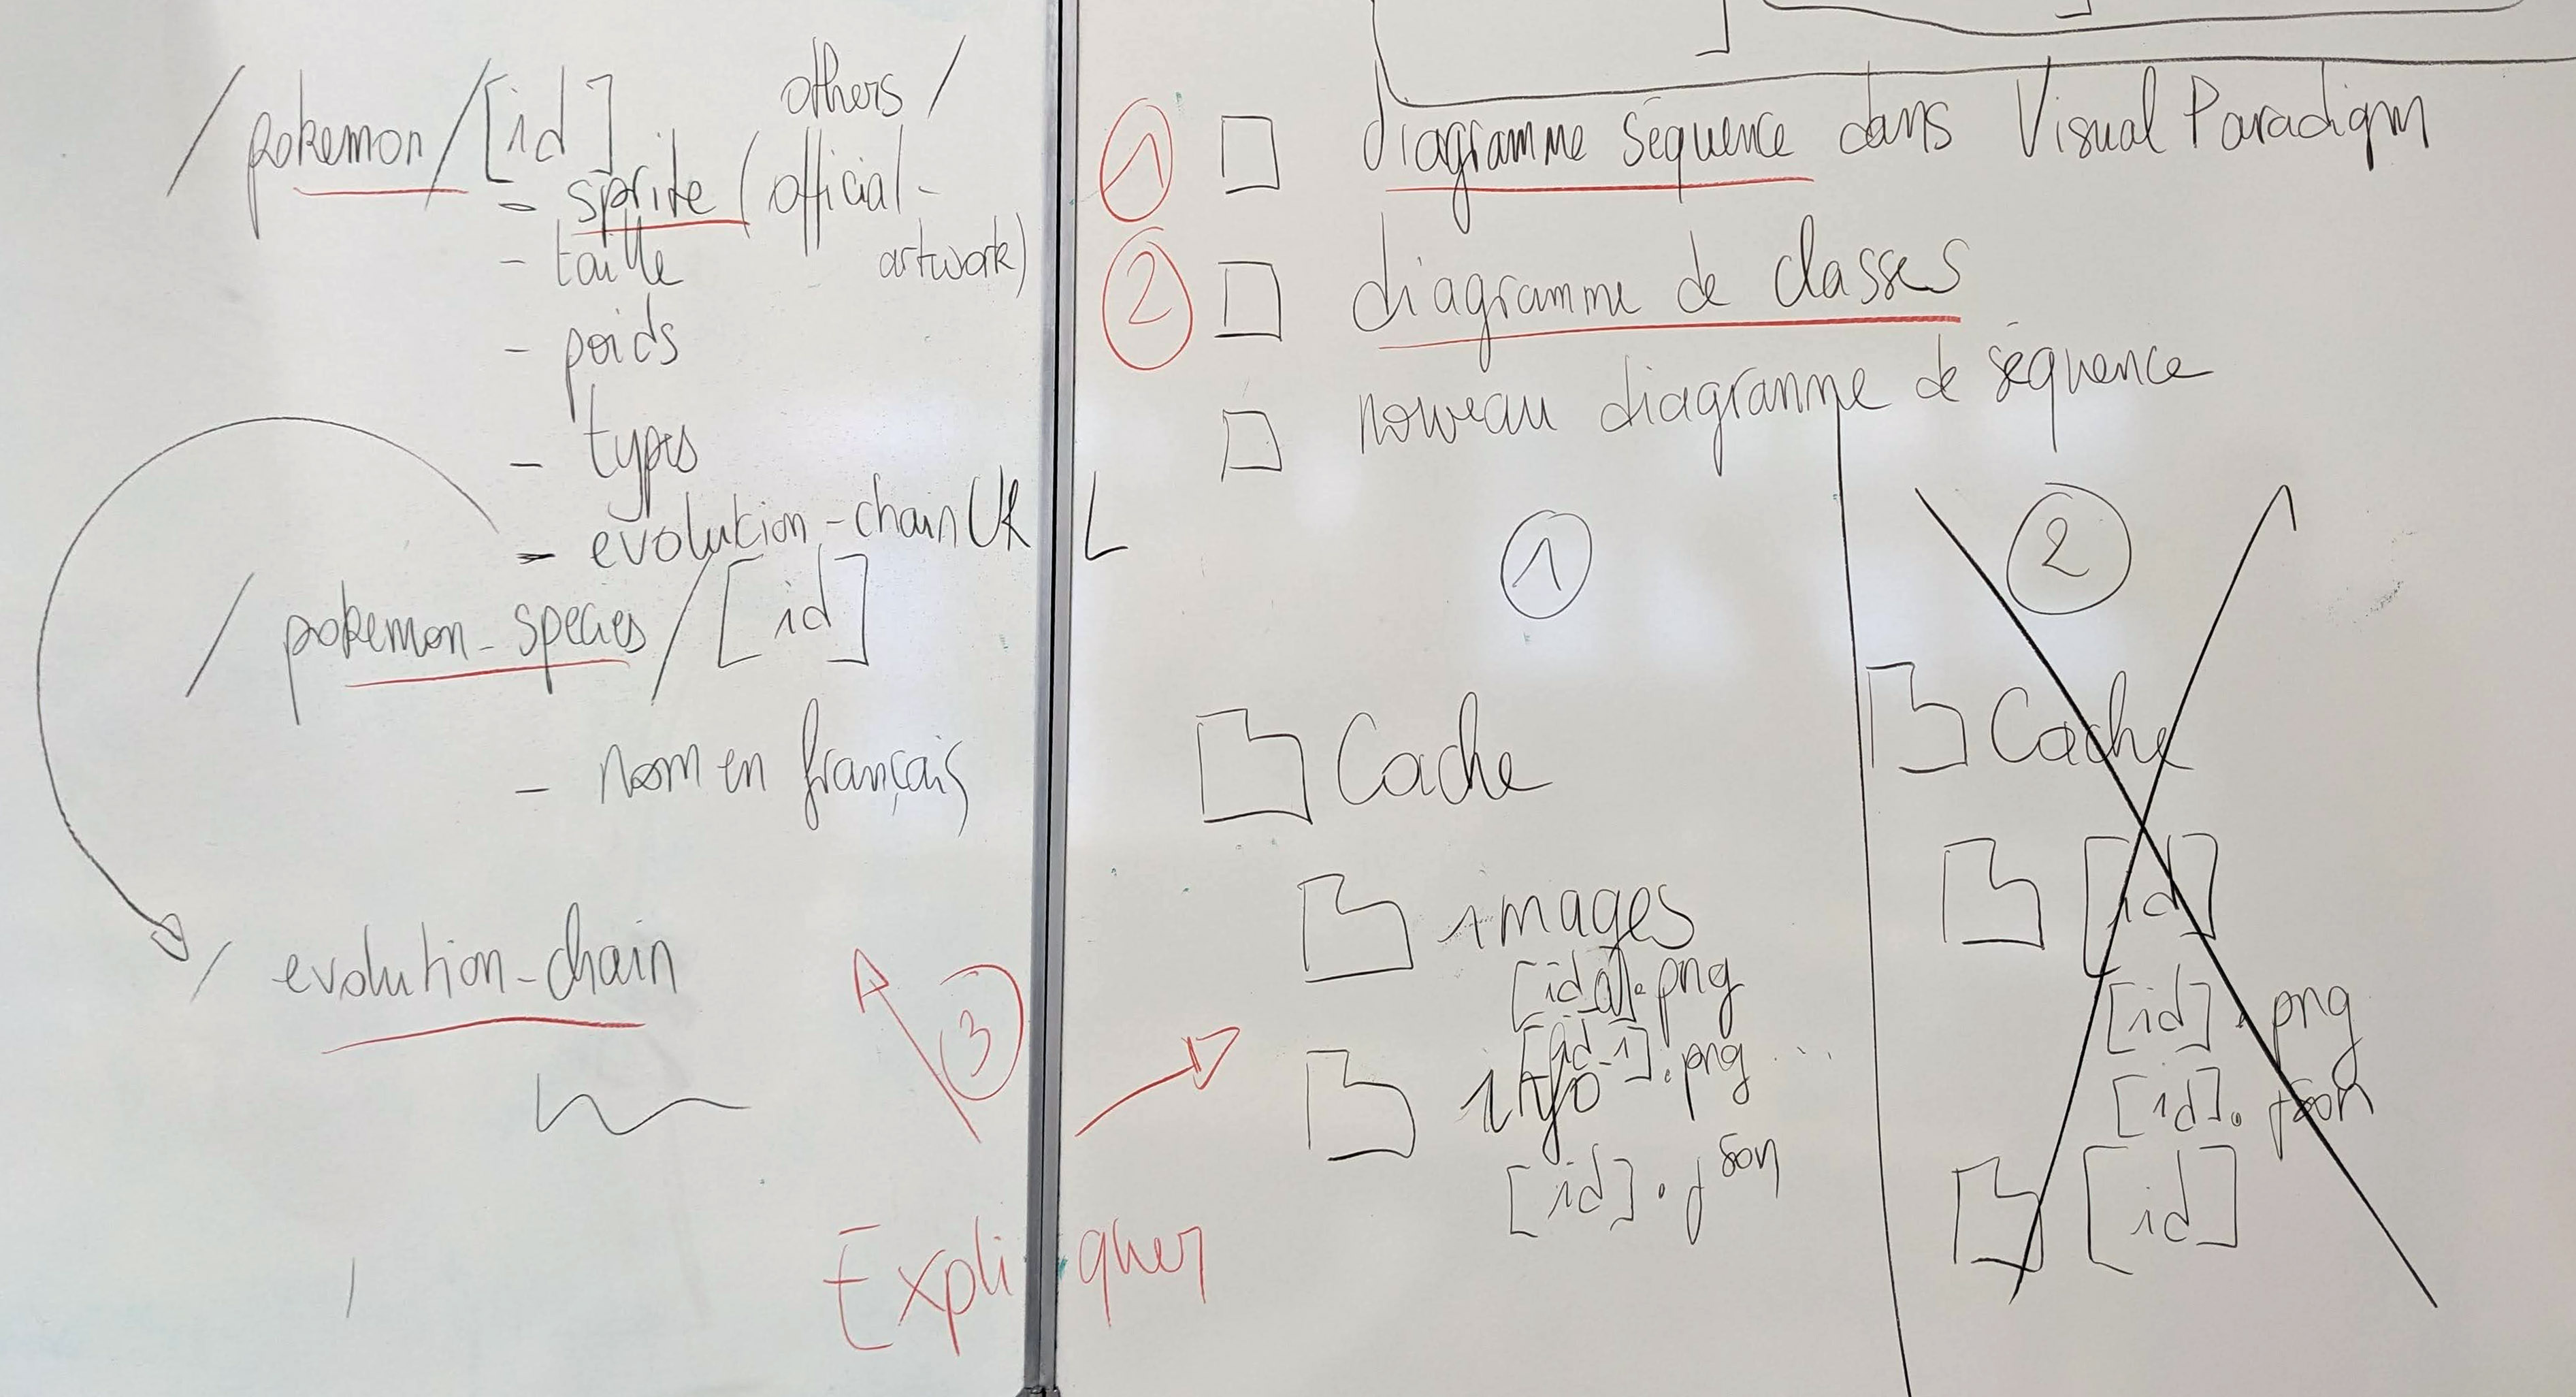 /pokemon/[id]
- sprite (others/official-artwork)
- taille
- poids
- types
- evolution-chain URL
/pokemon-species/[id]
- nom en français
/evolution-chain
3
Expliquer
1 diagramme séquence dans Visual Paradigm
2 diagramme de classes
nouveau diagramme de séquence
1
Cache
images
[id_0].png
[id_1].png ...
info
[id].json
2
Cache
[id]
[id].png
[id].json
[id]